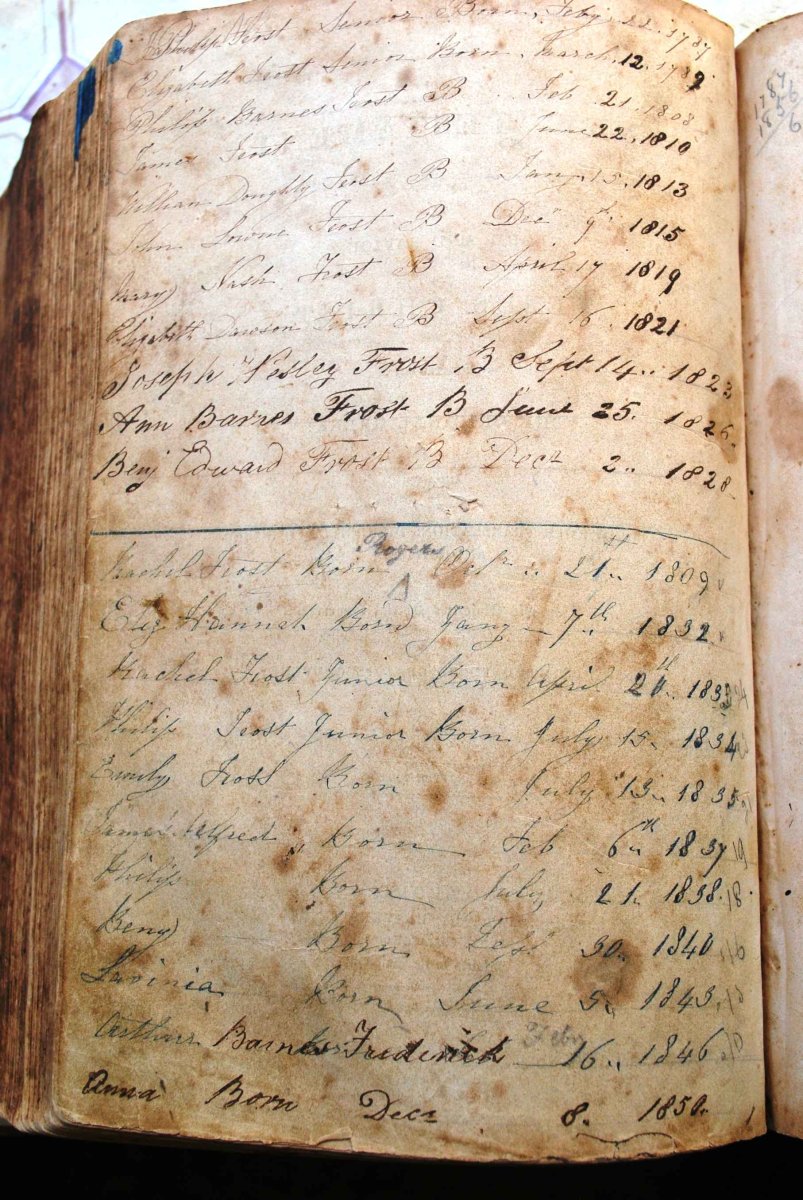 Philip Frost Senior Born Feby 22 1787
Elizabeth Frost Senior Born March 12 1789
Philip Barnes Frost B Feb 21 1808
James Frost B June 22. 1810
William Doughty Frost B Jany 15. 1813
John Lowne Frost B Decr 9th 1815
Mary Nash Frost B April 17 1819
Elizabeth Dawson Frost B Sept 16. 1821
Joseph Wesley Frost B Sept 14.. 1823
Ann Barnes Frost B June 25. 1826.
Benj Edward Frost B Decr 2.. 1828
Rogers
Rachel Frost Born Octr 21st 1809
Eliz Hannah Born Jany 7th 1832
Rachel Frost Junior Born April 20th 1833
Philip Frost Junior Born July 15. 1834
Emily Frost Born July 13.. 1835
James Alfred Born Feb 6th 1837
Philip Born July 21. 1838.
Benj Born Sept 30.. 1840
Lavinia Born June 5.. 1843
Arthur Barnes Frederick Feby 16.. 1846
Anna Born Decr 8. 1850.
1787
1856